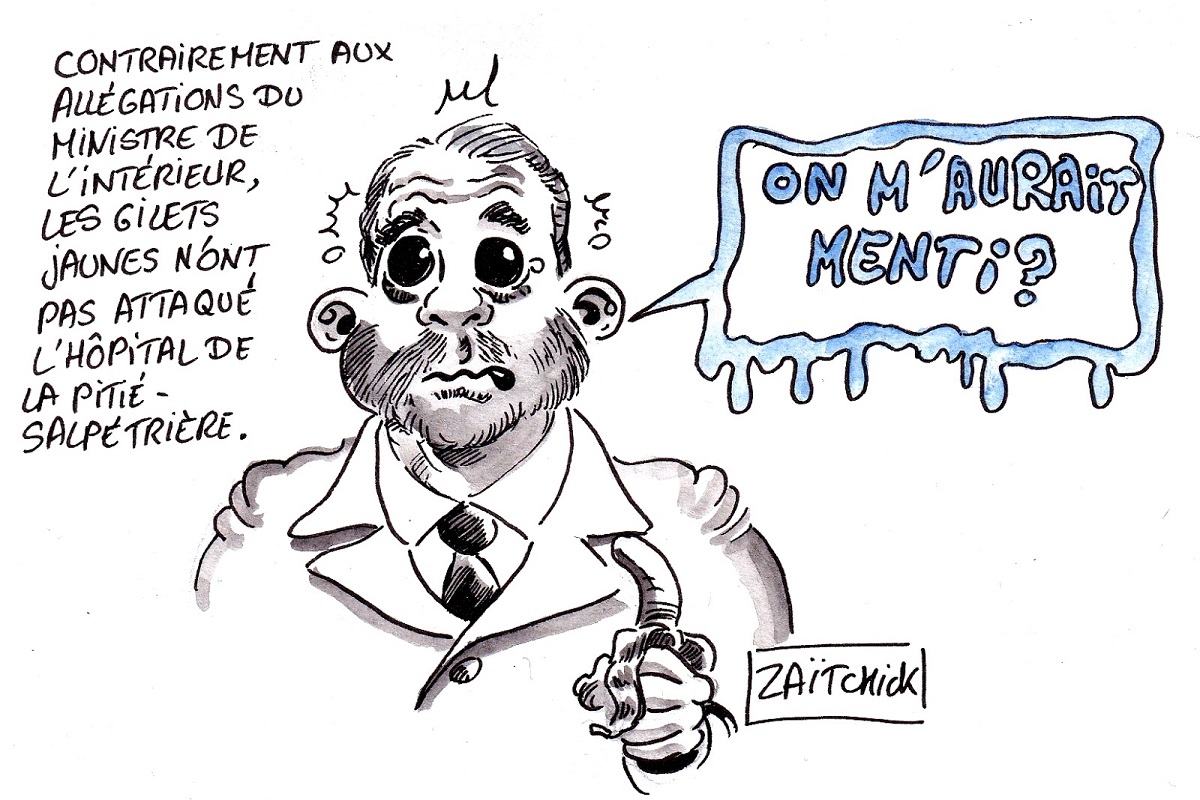 CONTRAIREMENT AUX
ALLÉGATIONS DU
MINISTRE DE
L'INTÉRIEUR,
LES GILETS
JAUNES N'ONT
PAS ATTAQUÉ
L'HÔPITAL DE
LA PITIÉ-
SALPÉTRIÈRE.
ON M'AURAIT
MENTI?
ZAÏTCHICK